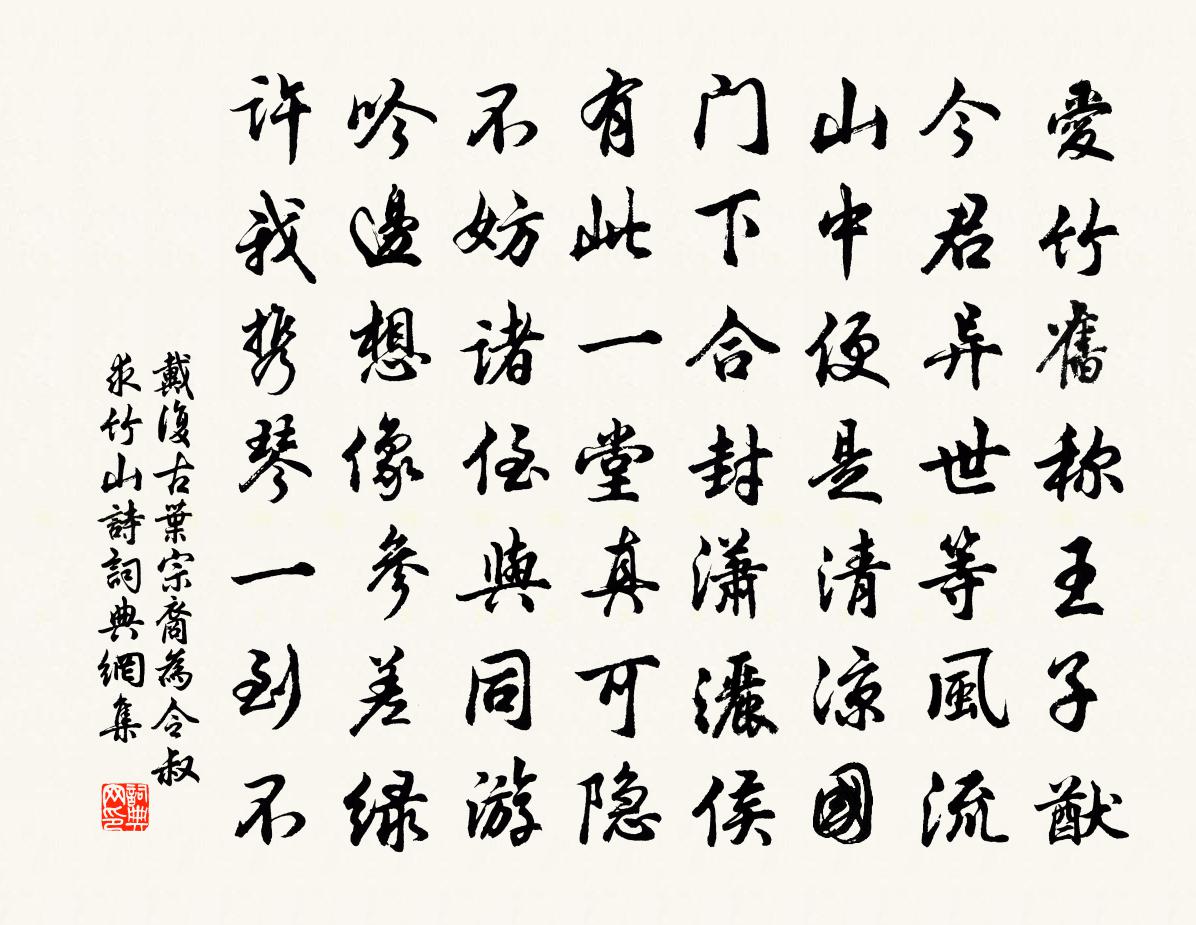 愛竹舊称王子猷
今君异世等風流
山中便是清凉國
门下合封潇灑侯
有此一堂真可隐
不妨諸侄與同游
吟邊想像参差绿
许我携琴一到不
戴復古葉宗裔為令叔
求竹山詩詞典網集
詞典
网印